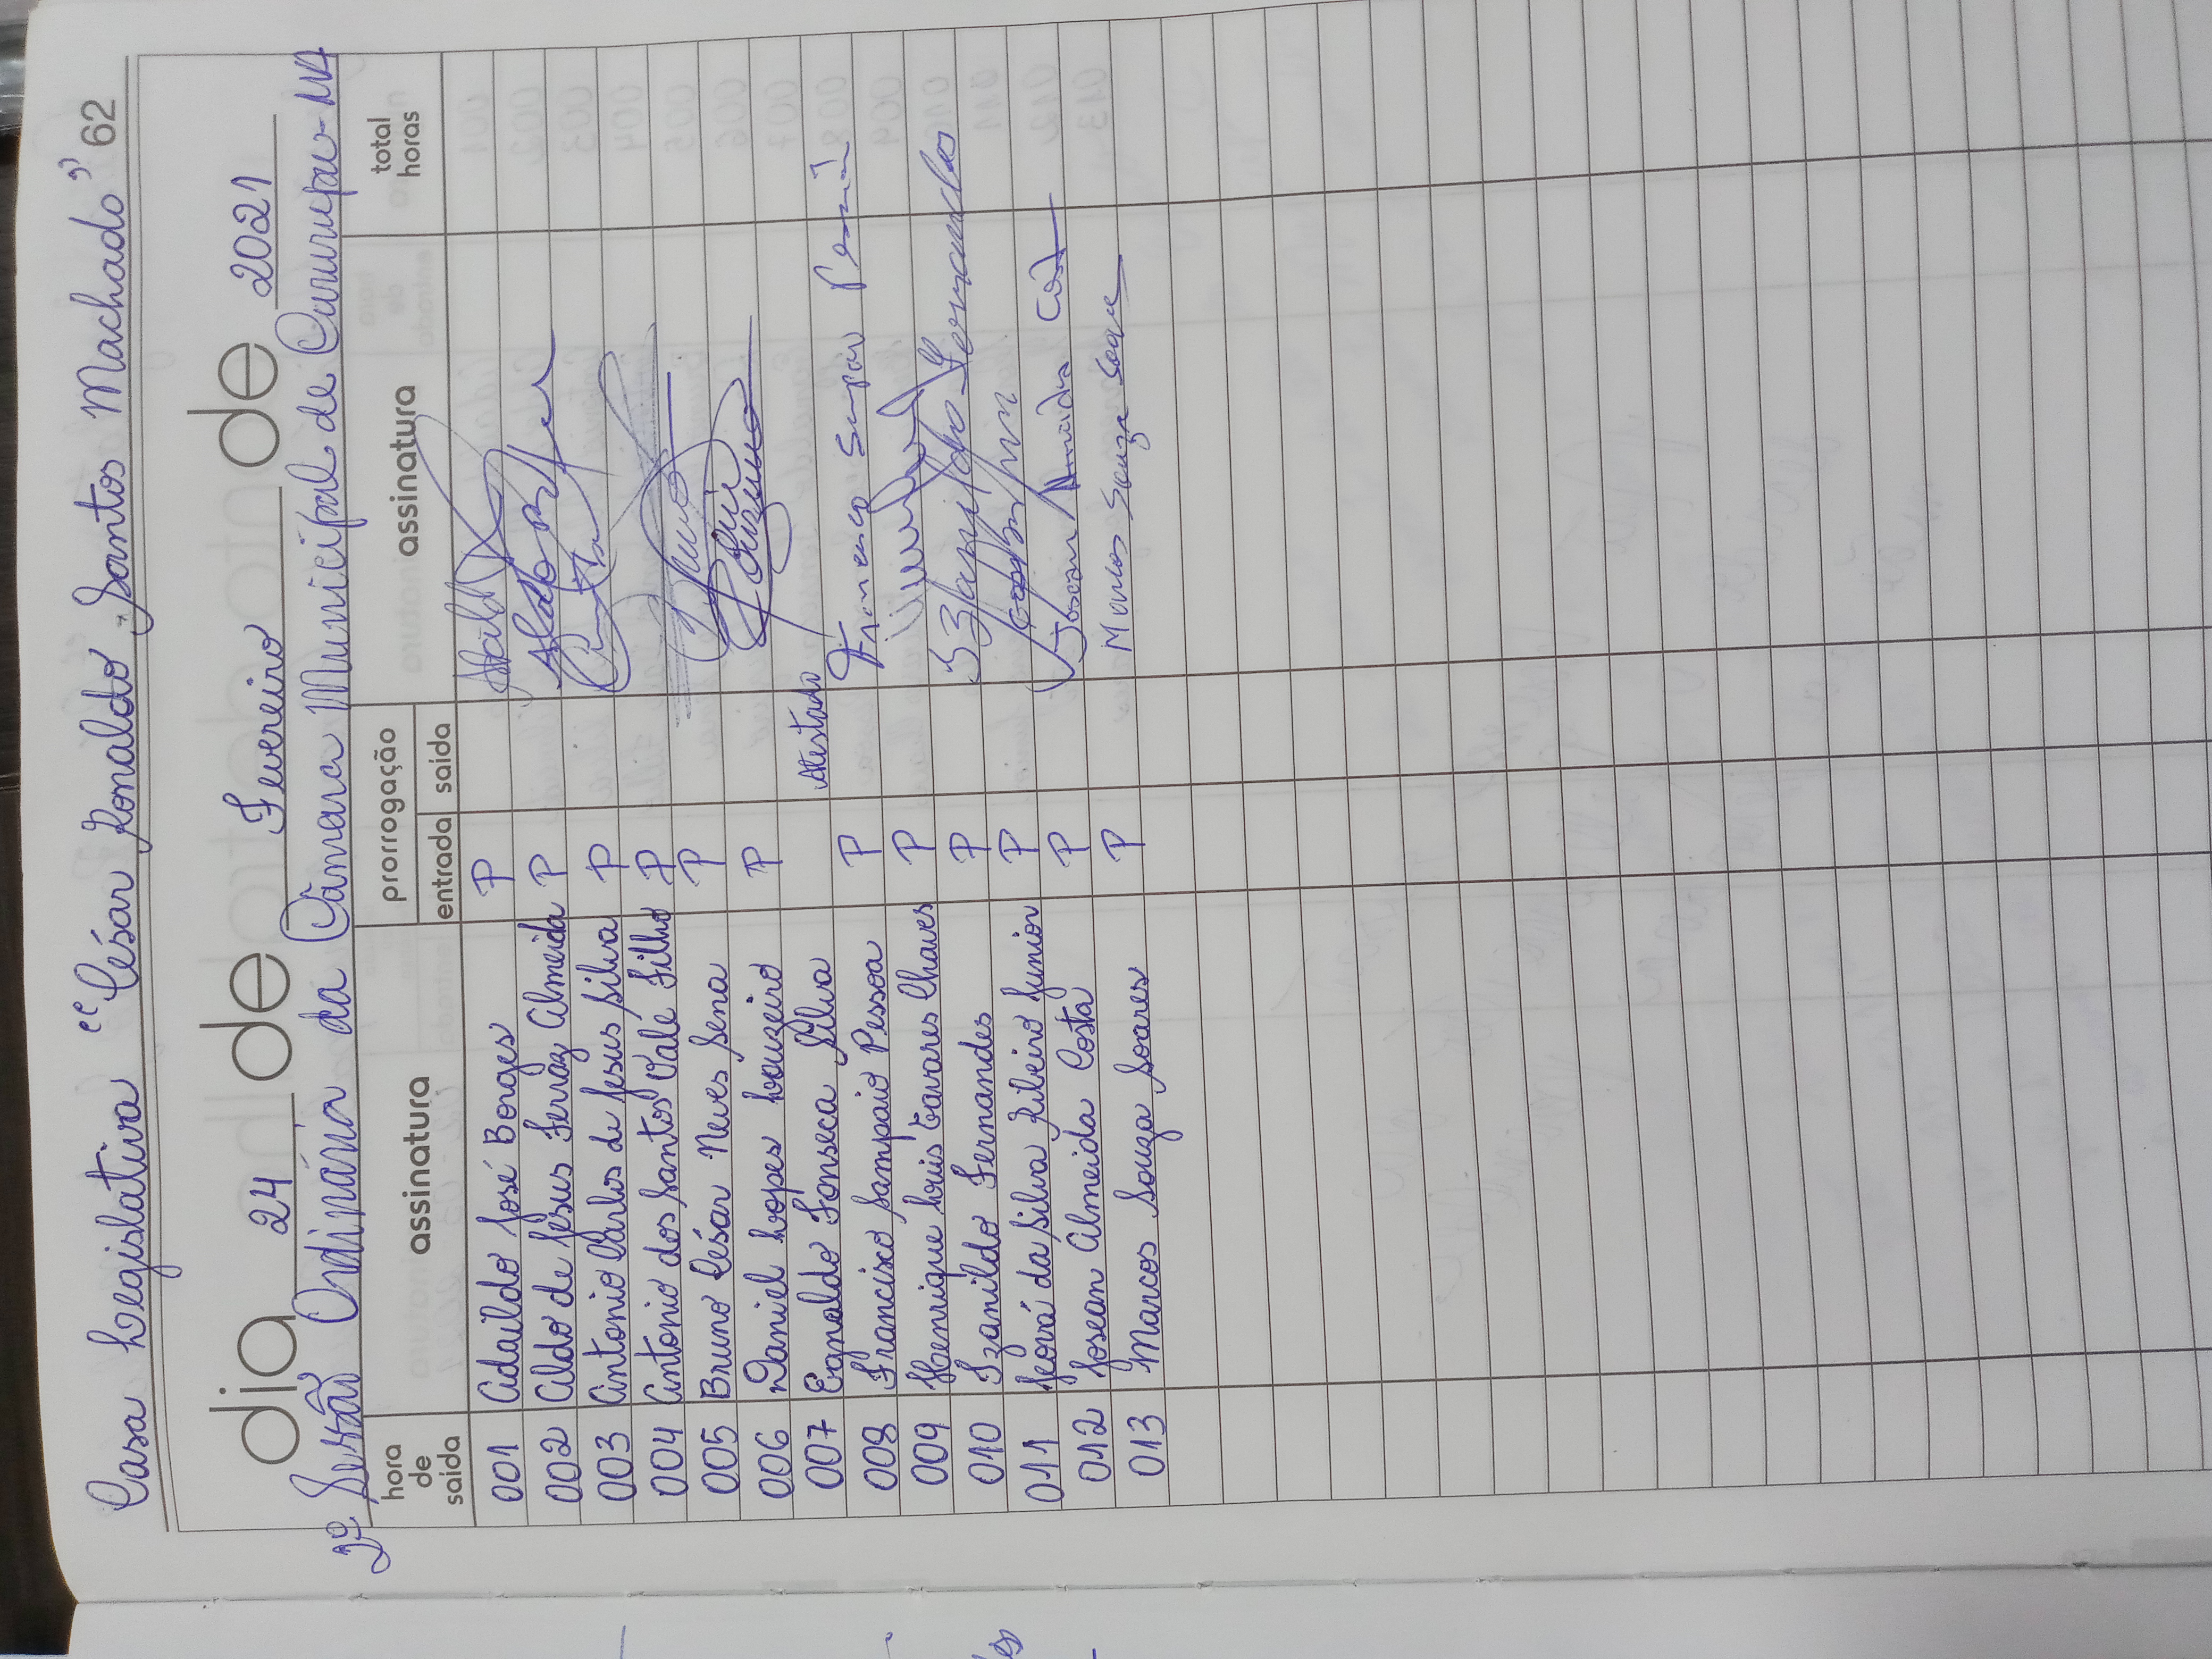 Casa Legislativa "César Ronaldo Santos Machado" 62
dia 24 de Fevereiro de 2021
2º Sessão Ordinária da Câmara Municipal de Cururupu-MA
hora de saída assinatura prorrogação entrada saída assinatura total horas
001 Adaildo José Borges P
002 Aldo de Jesus Ferraz Almeida P
003 Antonio Carlos de Jesus Silva P
004 Antonio dos Santos Vale Filho P
005 Bruno César Neves Sena P
006 Daniel Lopes Louzeiro P
007 Egnaldo Fonseca Silva Atestado
008 Francisco Sampaio Pessoa P Francisco
009 Henrique Luis Tavares Chaves P
010 Izanildo Fernandes P Fernandes
011 Jeová da Silva Ribeiro Junior P
012 Josean Almeida Costa P Josean Almeida
013 Marcos Souza Soares P Marcos Souza Soares